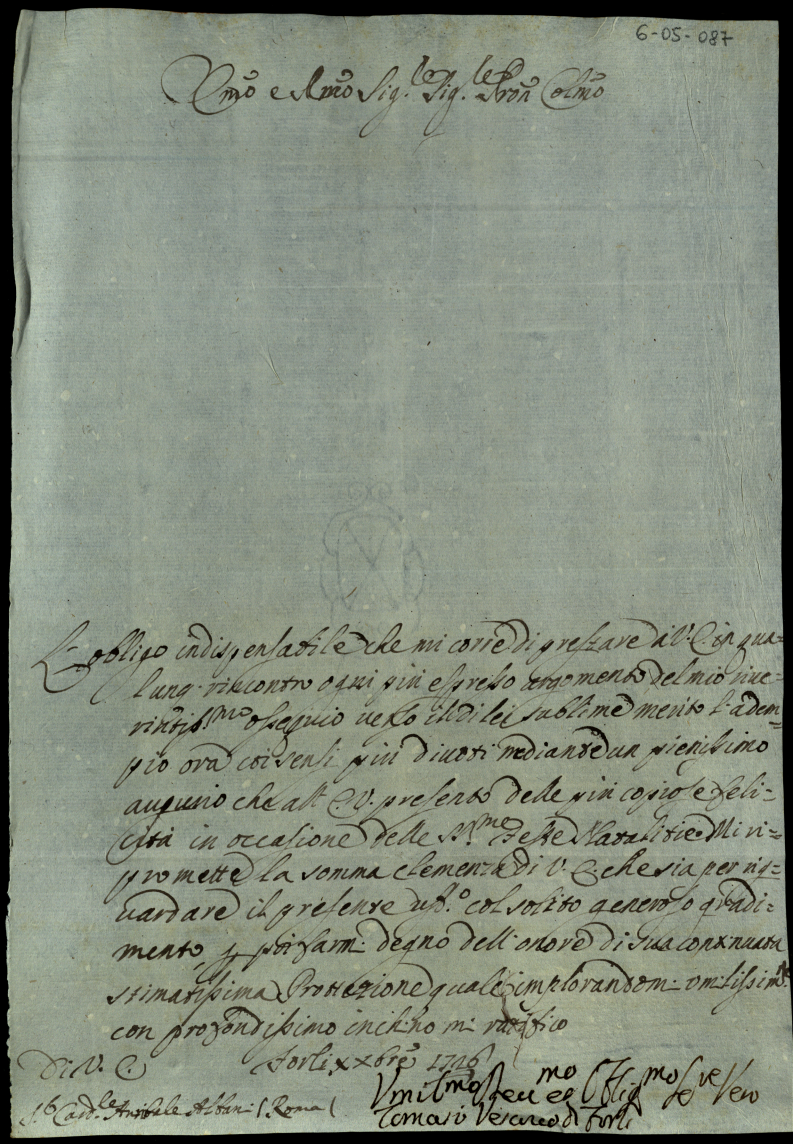 6-05-087
Emo e Rmo Sig.re Sig.re Pron Colmo
L'obligo indispensabile che mi corre di prestare à V. E. in qua=
lunq: rincontro ogni più espresso argomento del mio rive=
rentiss.mo ossequio verso il di lei sublime merito l'adem=
pio ora coi sensi più divoti mediante un pienissimo
augurio che all' E. V. presento delle più copiose feli=
cità in occasione delle SS.me Feste Natalitie. Mi ri=
prometto la somma clemenza di V. E. che sia per rig=
uardare il presente uff.o col solito generoso gradi=
mento, e poi farmi degno dell'onore di sua continuata
stimatissima Protezione quale implorandomi
con profondissimo inchino mi ratifico
Di V. E.
Forlì xxbre 1726
S.r Card.le Annibale Albani (Roma(
Vmil.mo Dev.mo ed Oblig.mo Se.re Vero
Tomaso Vescovo di Forlì